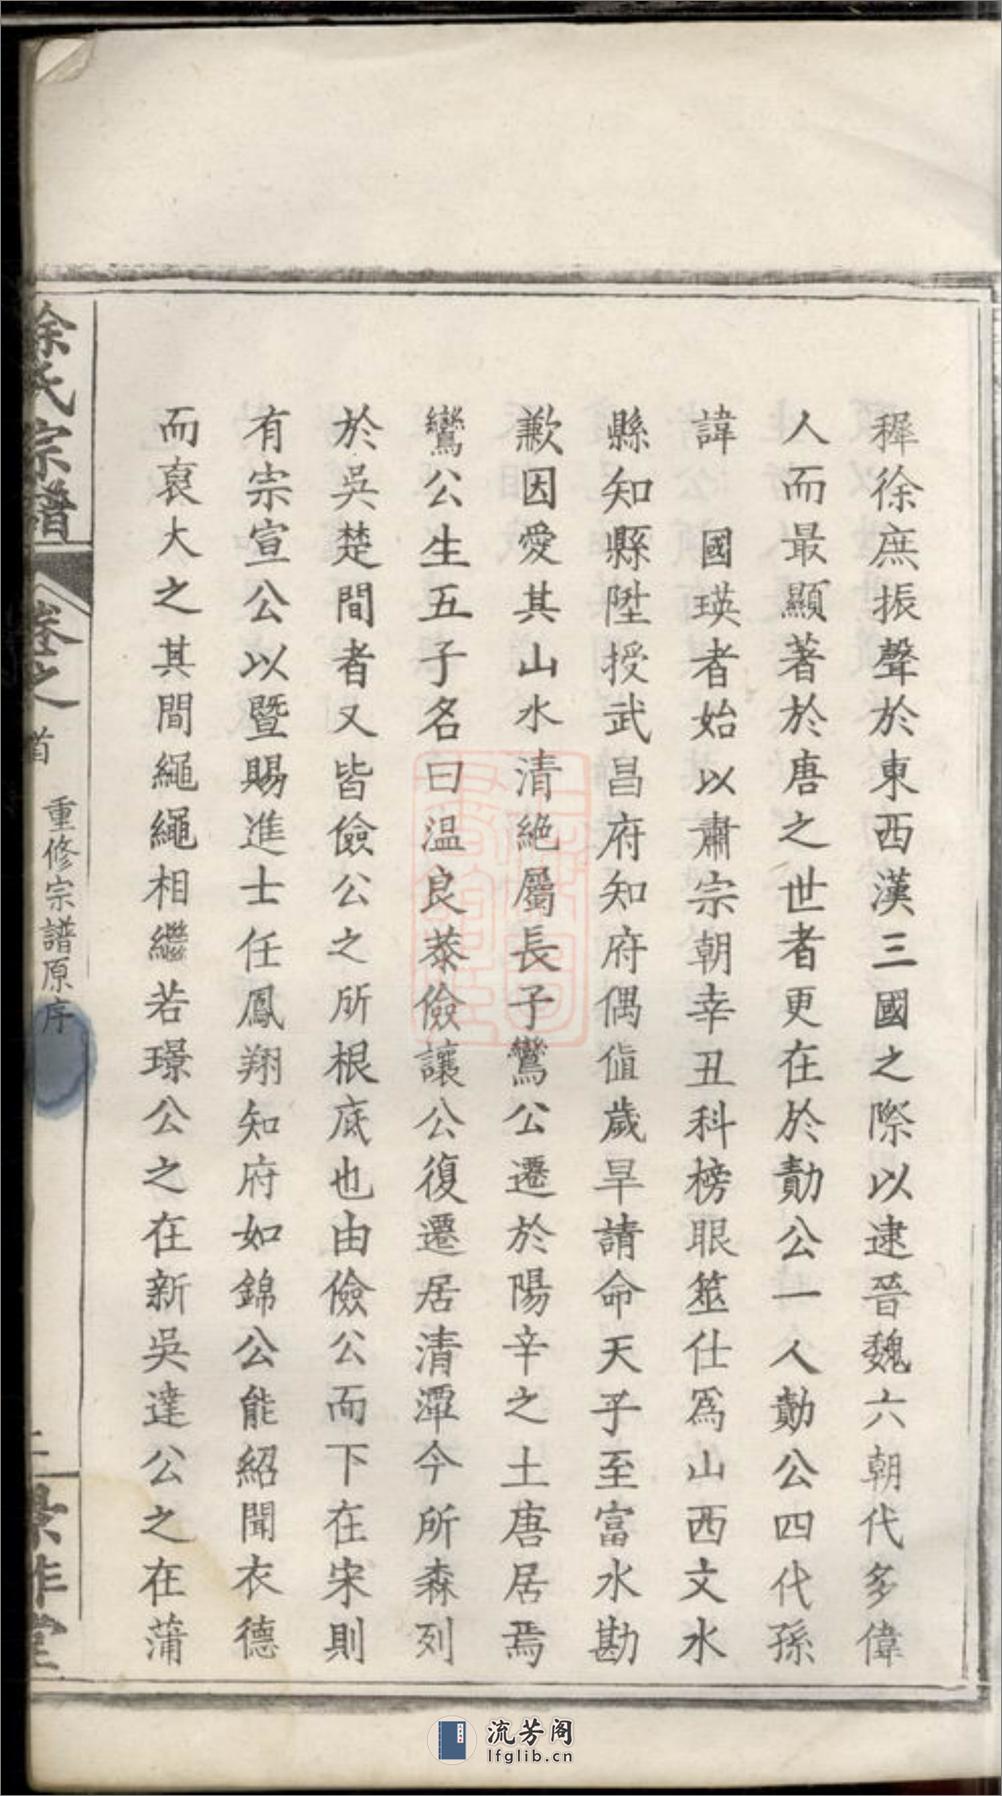 穉徐庶振聲於東西漢三國之際以逮晉魏六朝代多偉
人而最顯著於唐之世者更在於勣公一人勣公四代孫
諱 國瑛者始以肅宗朝辛丑科榜眼筮仕爲山西文水
縣知縣陞授武昌府知府偶値歲旱請命天子至富水勘
歉因愛其山水清絶屬長子鸞公遷於陽辛之土唐居焉
鸞公生五子名曰温良恭儉讓公復遷居清潭今所森列
於吳楚間者又皆儉公之所根底也由儉公而下在宋則
有宗宣公以暨賜進士任鳳翔知府如錦公能紹聞衣德
而裒大之其間繩繩相繼若璟公之在新吳達公之在蒲
徐氏宗譜
卷之首
重修宗譜原序
流芳阁
lfglib.cn